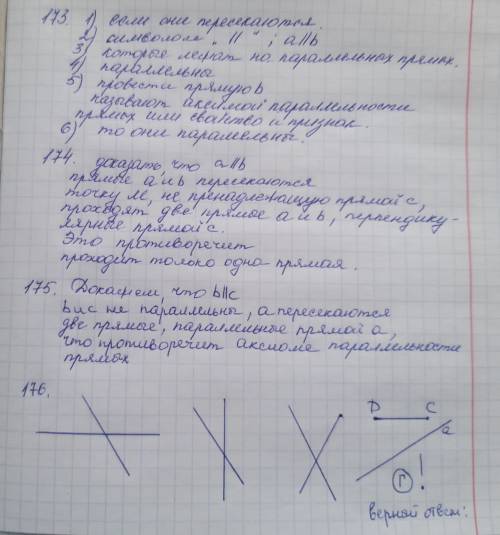 173. 1) если они пересекаются.
2) символом „ || “ ; a||b
3) которые лежат на параллельных прямых.
4) параллельны
5) провести прямую b
называют аксиомой параллельности
прямых или свойство и признак.
6) то они параллельны.
174. доказать, что a||b
прямые a и b пересекаются
точку M, не пренадлежащую прямой c,
проходят две прямое a и b, перпендику-
лярные прямой c.
Это противоречит
проходит только одна прямая.
175. Докажем, что b||c
b и c не параллельны, a пересекаются
две прямые, параллельные прямой a,
что противоречит аксиоме параллельности
прямых
176.
D C
a
Г !
верной ответ: